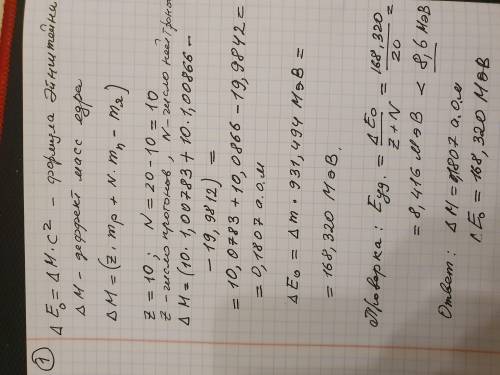 ①
ΔE₀ = ΔM·c² – формула Эйнштейна
ΔM – деффект масс ядра
ΔM = (Z·mp + N·mn – mя)
Z = 10; N = 20 – 10 = 10
Z – число протонов, N – число нейтронов
ΔM = (10·1,00783 + 10·1,00866 –
– 19,9812) =
= 10,0783 + 10,0866 – 19,9842 =
= 0,1807 а.о.м
ΔE₀ = Δm·931,494 МэВ =
= 168,320 МэВ.
Проверка: Eуд. = ΔE₀/(Z+N) = 168,320/20
= 8,416 МэВ < 8,6 МэВ
Ответ: ΔM = 0,1807 а.о.м
ΔE₀ = 168,320 МэВ